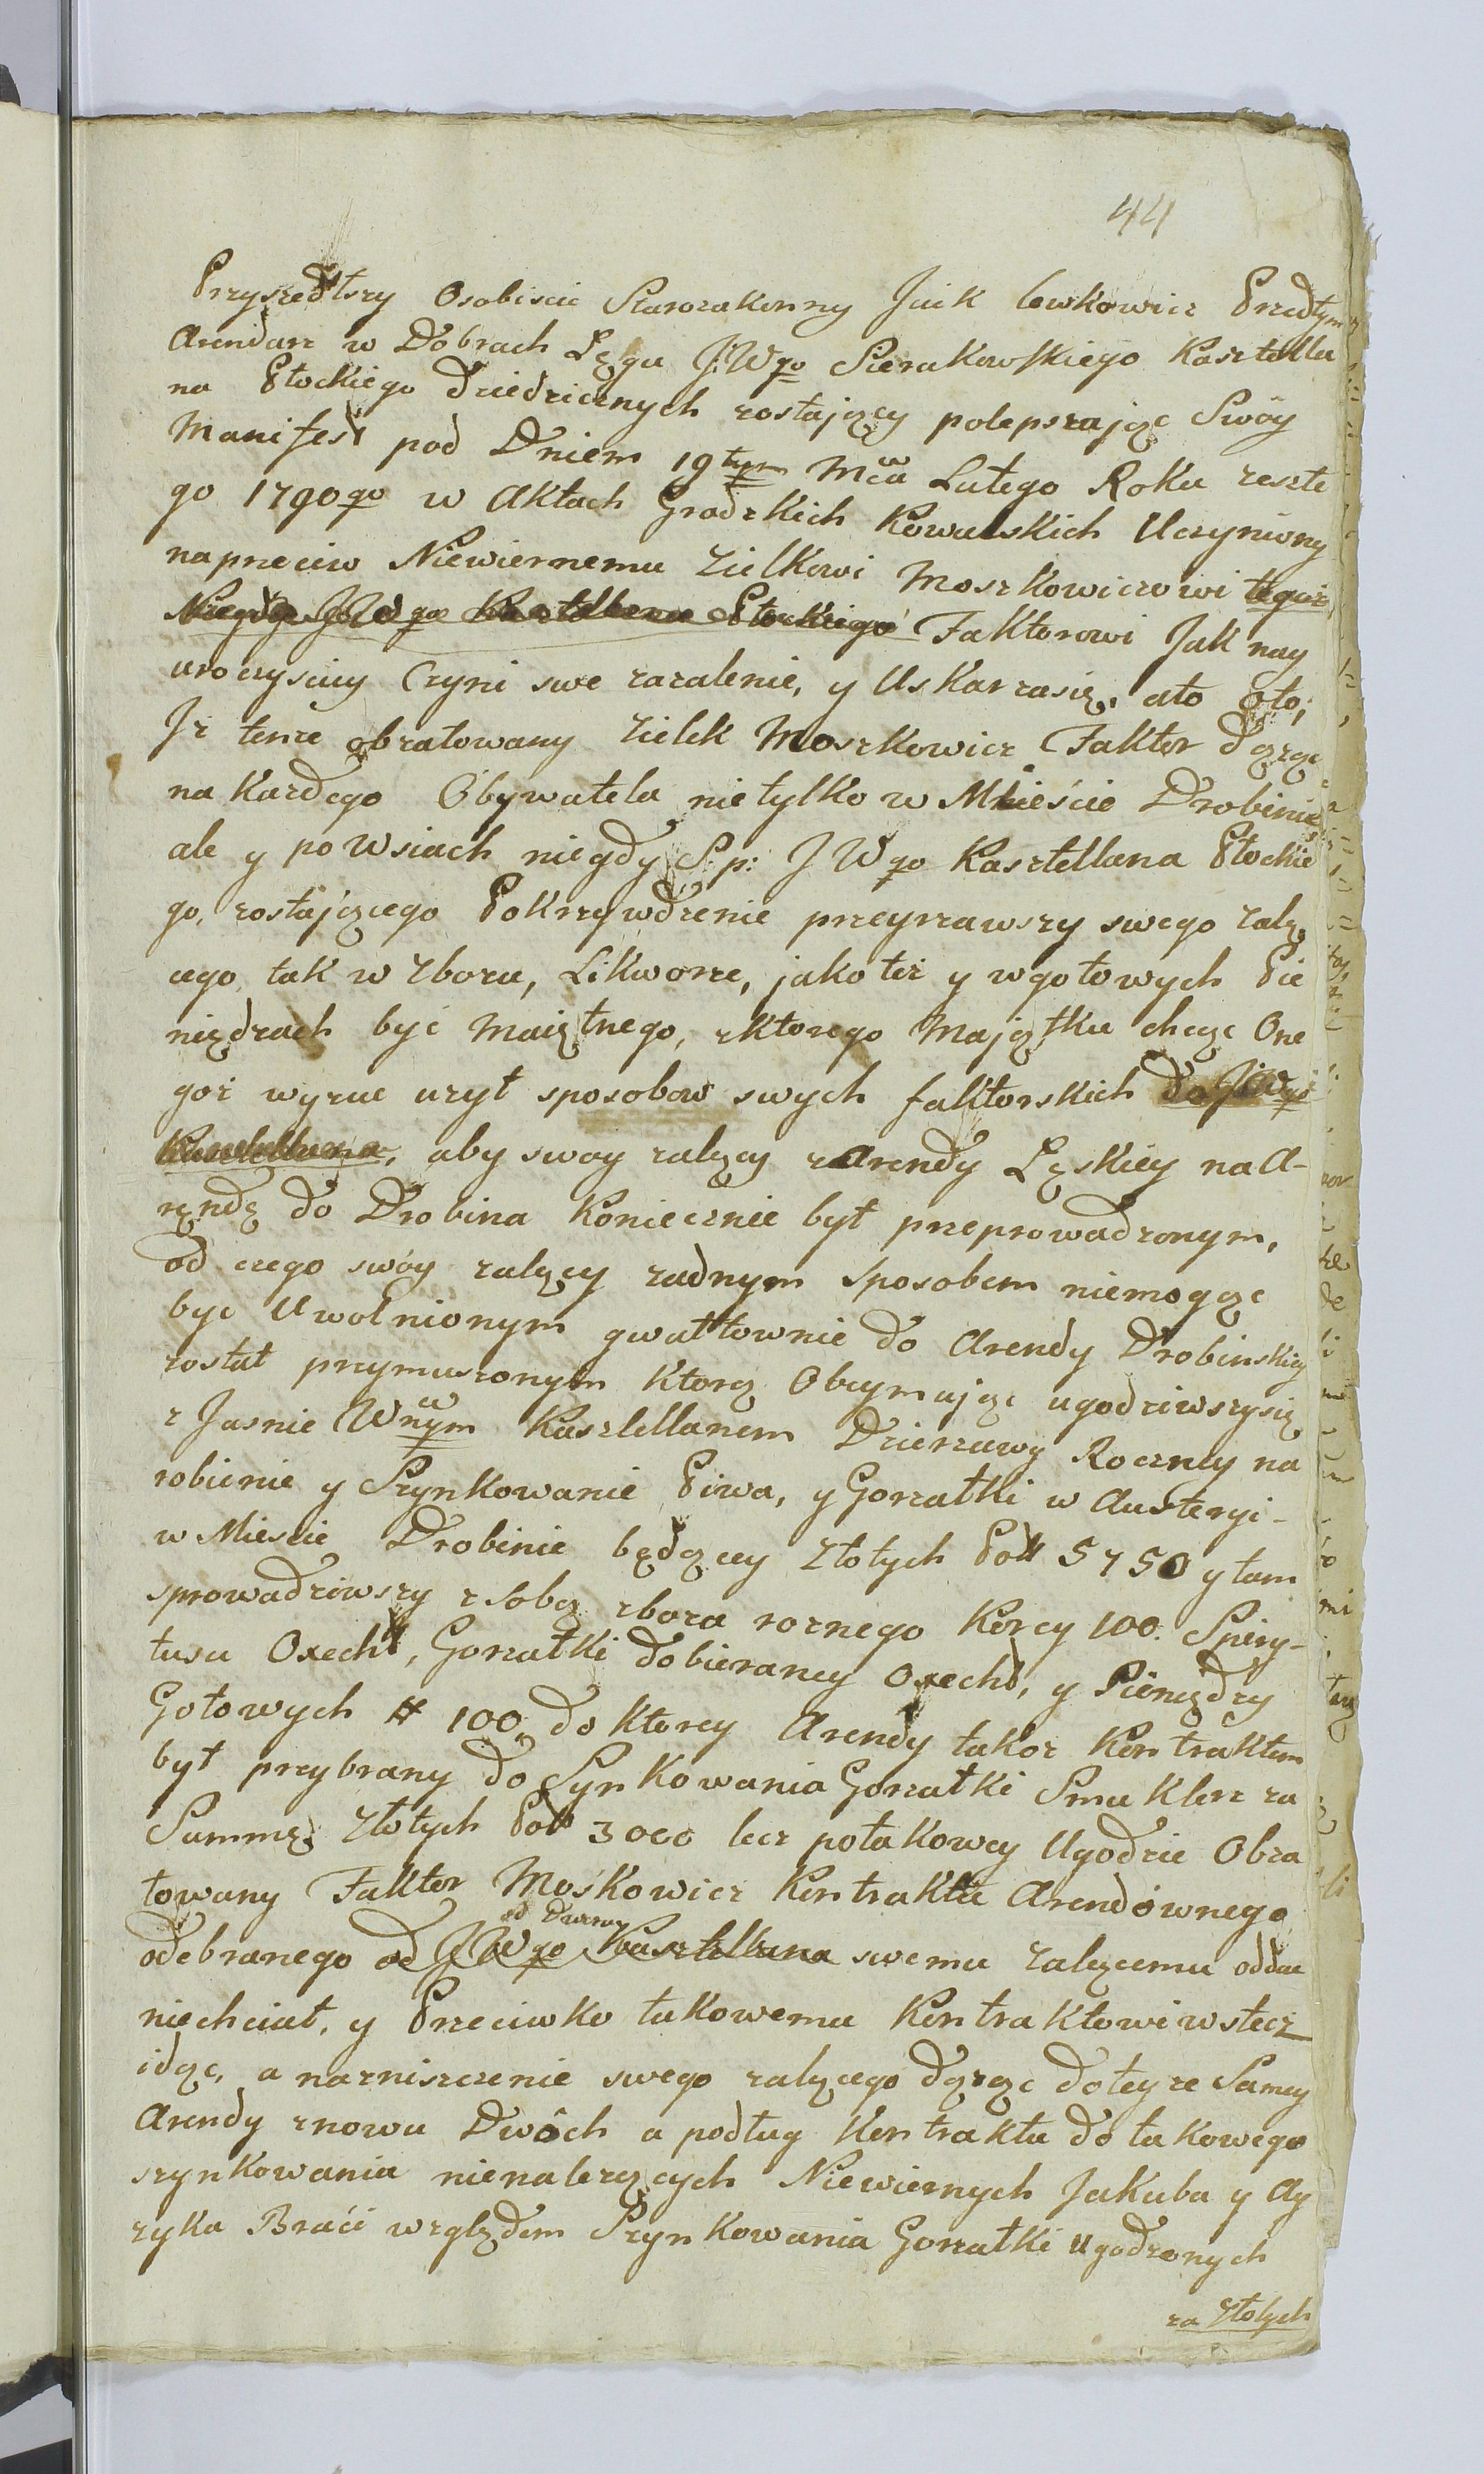 44
Przyszedłszy Osobiscie Starozakonny Jcik Lewkowicz Przedtym
Arendarz w Dobrach Łęgu JWgo Sierakowskiego Kasztella
na Płockiego Dziedzicznych zostaiący polepszaiąc Swóy
Manifest pod Dniem 19tym Mca Lutego Roku zeszłe
go 1790go w Aktach Grodzkich Kowalskich Uczyniony
naprzeciw Niewiernemu Zielkowi Moszkowiczowi tegoż
Niegdy JWgo Kasztellana Płockiego Faktorowi Jak nay
uroczysciey Czyni swe zazalenie, y Uskarzasię, ato oto;
Jz tenze obzałowany Zielek Moszkowicz Faktor dąząc
na Kazdego Obywatela nietylko w Mieście Drobinie
ale y po Wsiach niegdy S.p: JWgo Kasztellana Płockie
go, zostaiącego Pokrzywdzenie przeyzrawszy swego zalą
cego, tak w Zbozu, Likworze, jako też y wgotowych Pie
niędzach być Maiętnego, zktorego Majątku chcąc One
goż wyzuc uzył sposobow swych faktorskich do JWgo
Kasztellana, aby swoy zalący z Arendy Łęskiey na A-
rędę do Drobina Koniecznie był przeprowadzonym,
od czego swóy zalący zadnym sposobem niemogąc
byc Uwolnionym gwałtownie do Arendy Drobinskiey
został przymuszonym Ktorą Obeymując ugodziwszysię
z Jasnie Wnym Kasztellanem Dzierzawy Roczney na
robienie y Szynkowanie Piwa, y Gorzałki w Austeryi-
w Miescie Drobinie będącey Złotych Poll 5750 y tam
sprowadziwszy z sobą zboza roznego Korcy 100. Spiry-
tusu Oxeft, Gorzałki dobieraney Oxeft, y Pieniędzy
Gotowych # 100, do Ktorey Arendy takoz Kontraktem
był przybrany do Synkowania Gorzałki Smuklerz za
Summę Złotych Poll 3000 lecz potakowey Ugodzie Obza
łowany Faktor Mośkowicz Kontraktu Arendownego
od Dworu
odebranego od JWgo Kasztellana swemu Zalącemu oddac
niechciał, y Przeciwko takowemu Kontraktowi wstecz
idąc, a nazniszczenie swego zalącego dąząc doteyze Samey
Arendy znowu Dwóch a podług Kontraktu do takowego
szynkowania nienalezących Niewiernych Jakuba y Ay
zyka Braci względem Szynkowania Gorzałki Ugodzonych
za Złotych